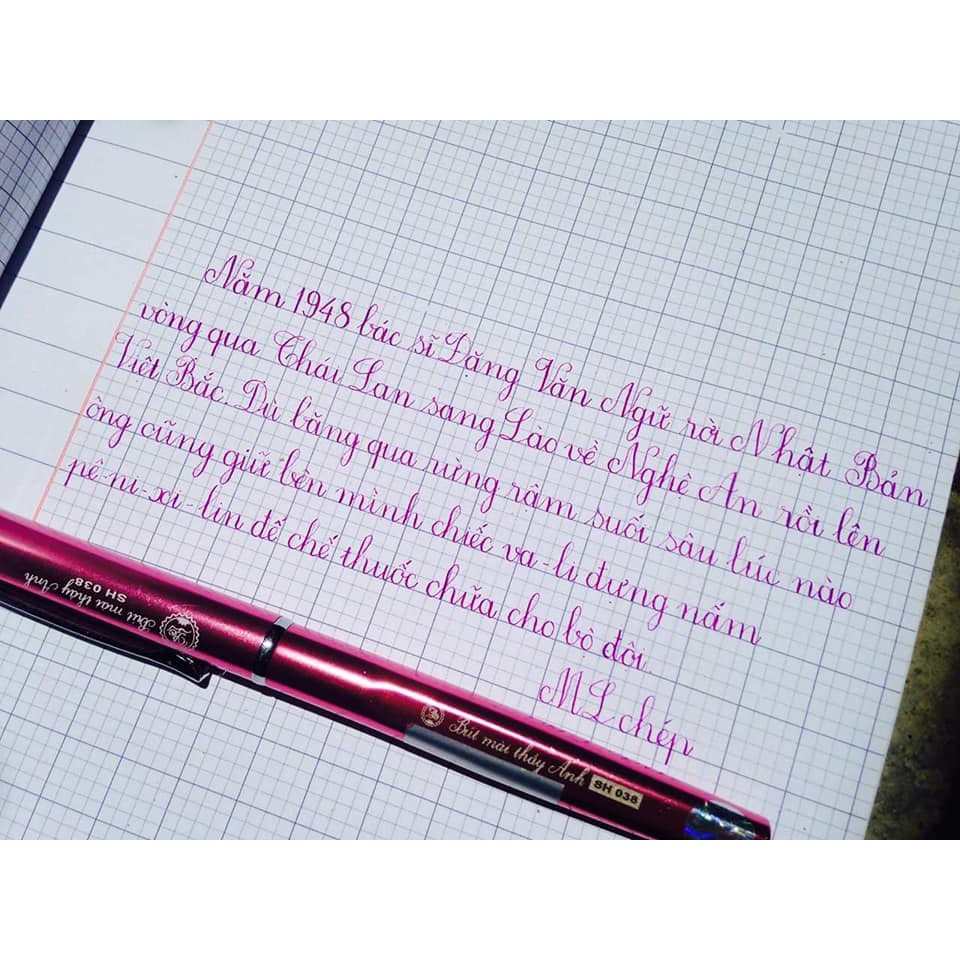 Năm 1948 bác sĩ Đặng Văn Ngữ rời Nhật Bản
vòng qua Thái Lan sang Lào về Nghệ An rồi lên
Việt Bắc. Dù băng qua rừng rậm suối sâu lúc nào
ông cũng giữ bên mình chiếc va-li đựng nấm
pê-ni-xi-lin để chế thuốc chữa cho bộ đội.
ML chép
Bút mài thầy Ánh
SH 038
Bút mài thầy Ánh SH 038